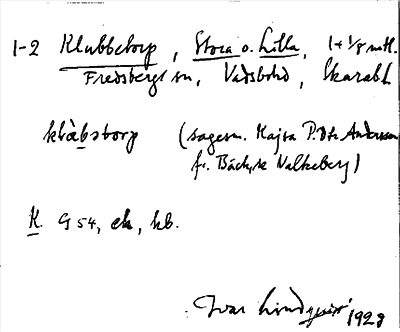 1-2 Klubbetorp, Stora o. Lilla, 1+1/8 mtl.
Fredsbergs sn, Vadsbo hd, Skarab. l.
klὰbstorp (sagesm. Majsa P. Dtr Andersson
fr. Bäck, sn Valkeberg)
K. G 54, ek, kb.
Ivar Lindquist 1923